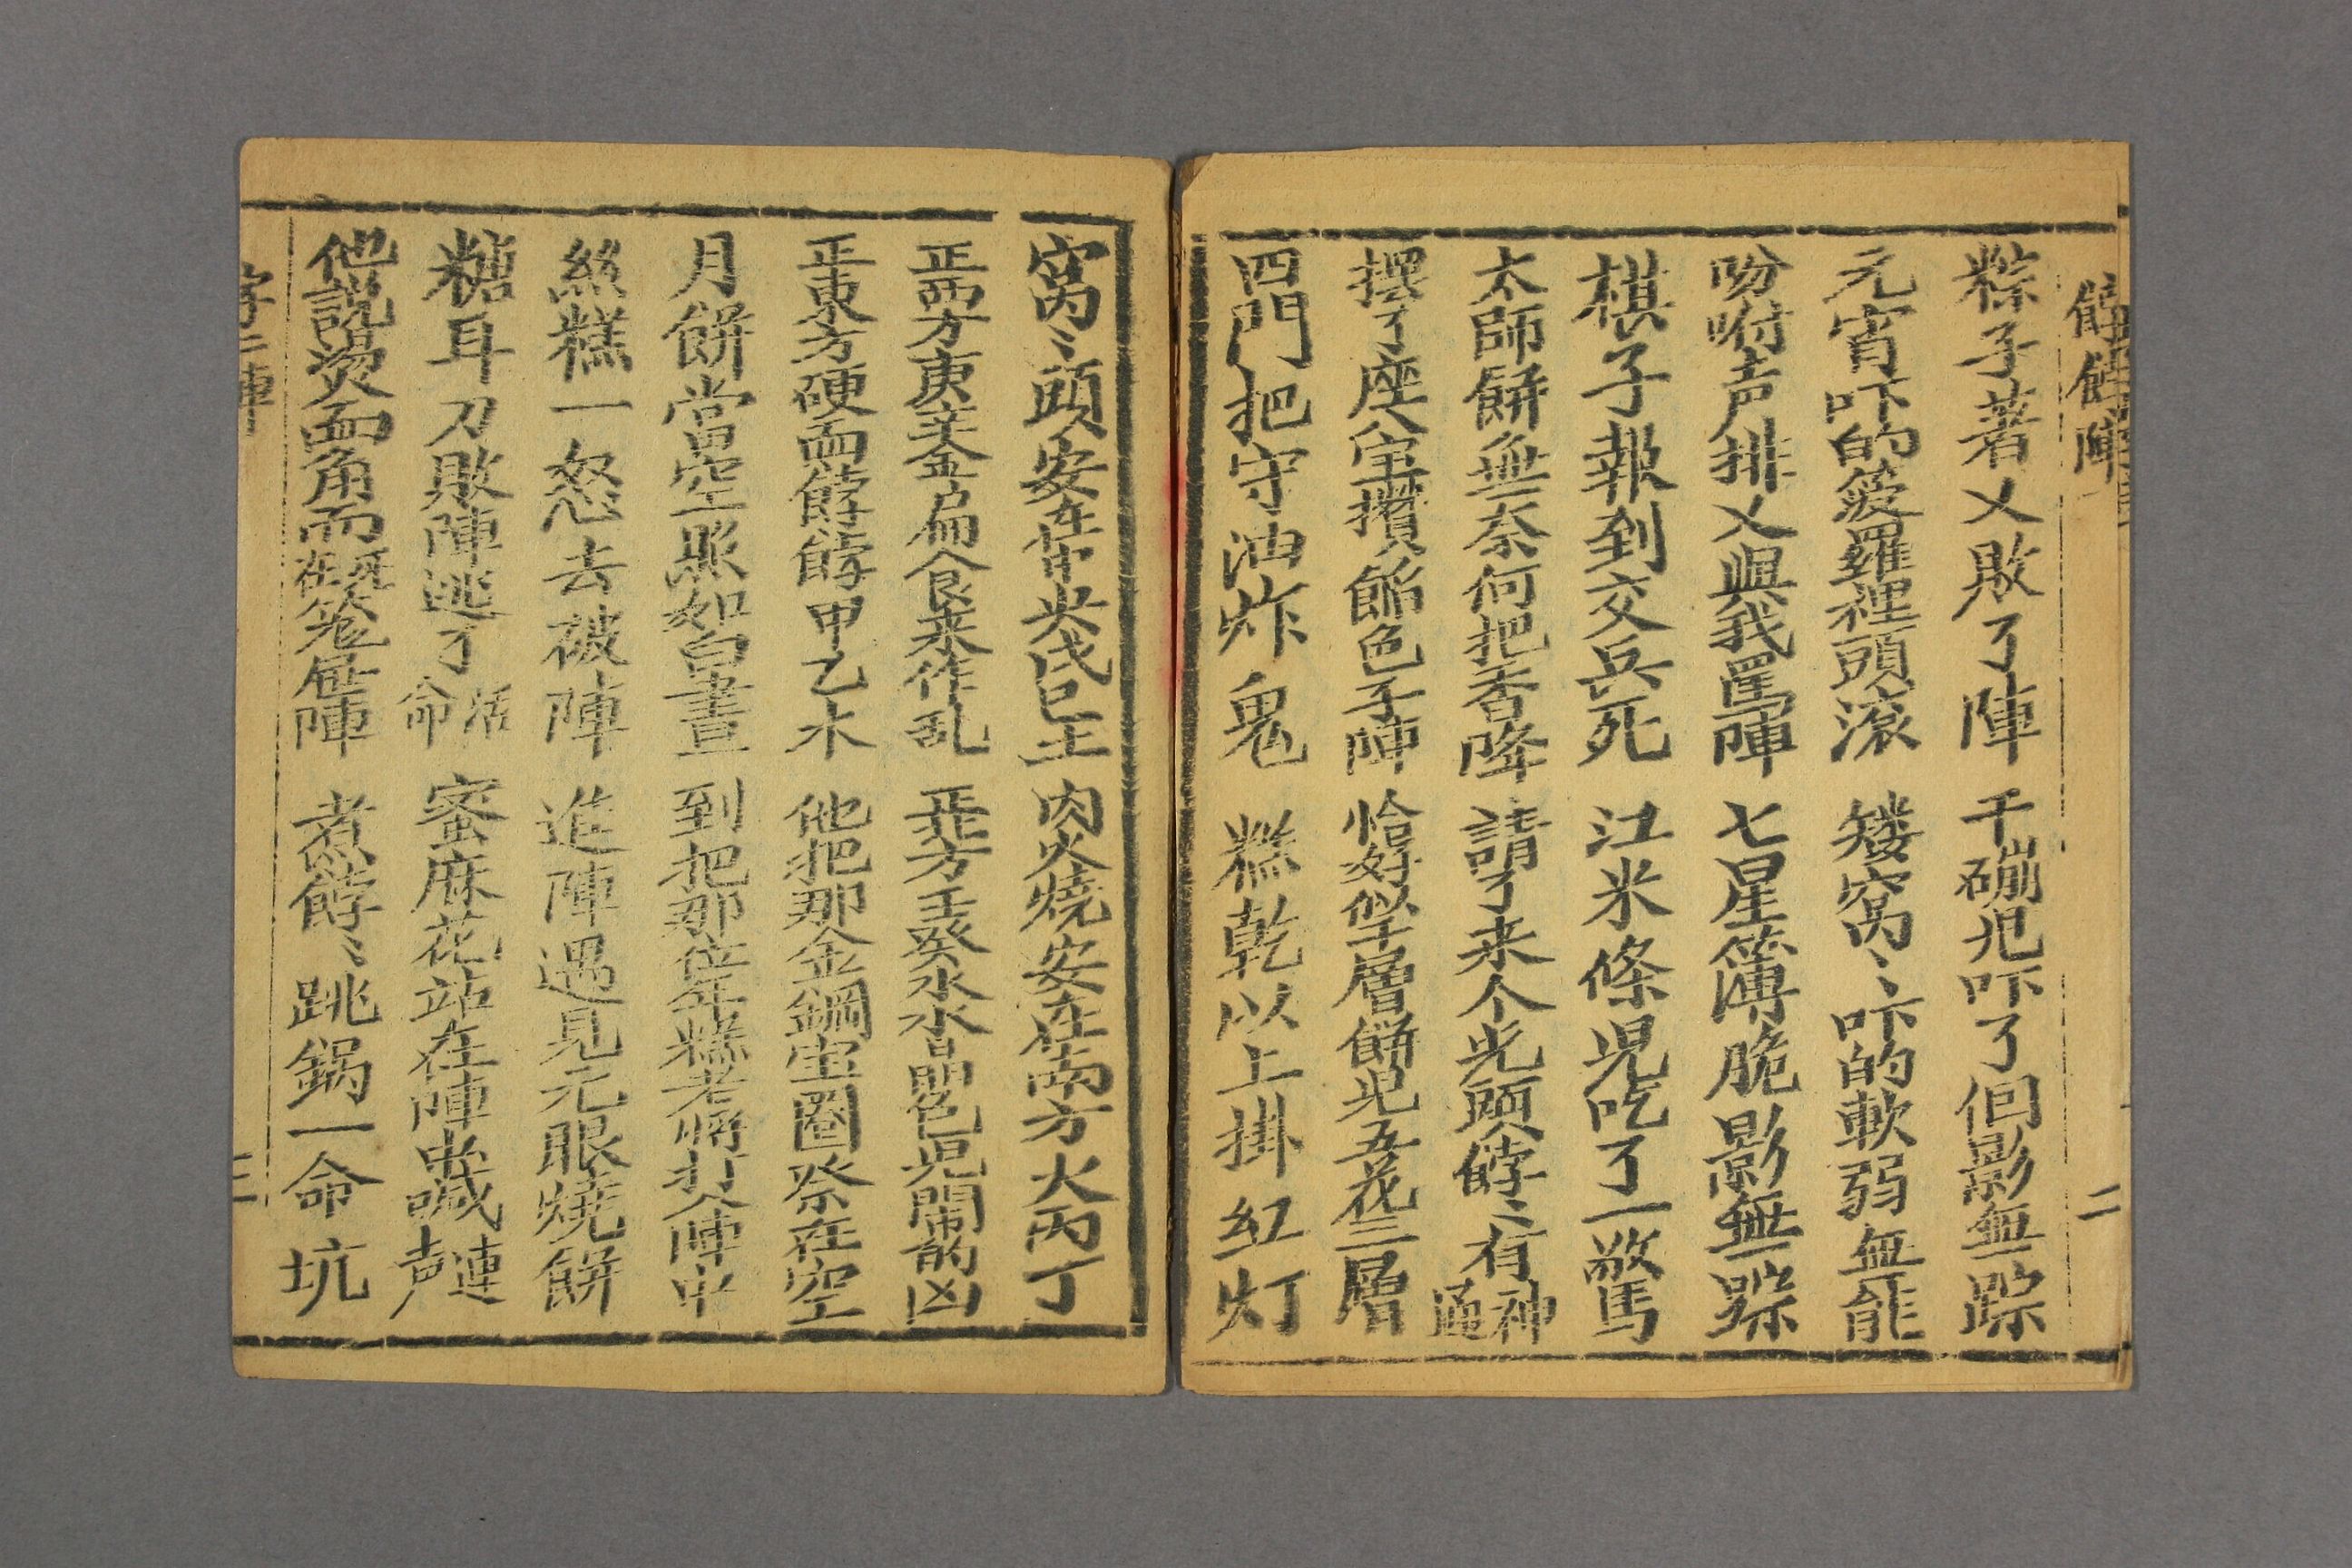 餑餑陣 二
粽子著乂敗了陣 干硼児吓了個影無踪
元宵吓的簍羅裡頭滚 矮窩〻吓的軟弱無能
吩咐声排乂與我罵陣 七星簿脆影無踪
棋子報到交兵死 江米條児吃了一敬馬
太師餅無奈何把香降 請了来个光頭餑〻有神通
摆了座八宝攅餡色子陣 恰好似千層餅児五花三層
四門把守油炸鬼 糕乾以上掛紅灯
窩〻頭安在中央戊己土 肉火燒安在南方火丙丁
正西方庚辛金扁食来作乱 正北方壬癸水水晶包児鬧的凶
正東方硬面餑餑甲乙木 他把那金鋼宝圈祭在空
月餅當空照如白晝 到把那位年糕老將打入陣中
絲糕一怒去破陣 進陣遇見元眼燒餅
糖耳刀敗陣逃了活命 蜜麻花站在陣中喊声連
他說燙面角而現在籠屉陣 煮餑〻跳鍋一命坑
陣 三